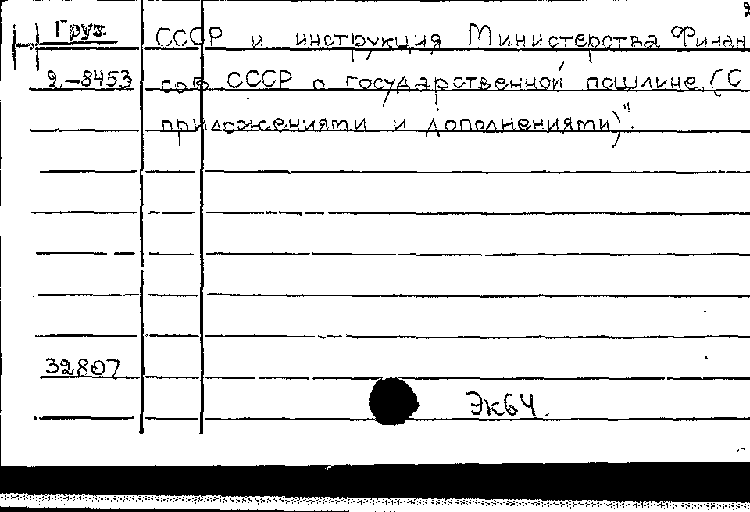 Груз. СССР и инструкция Министерства Финан
2.-8453 сов СССР о государственной пошлине, (С
приложениями и дополнениями)".
32807
Эк64.